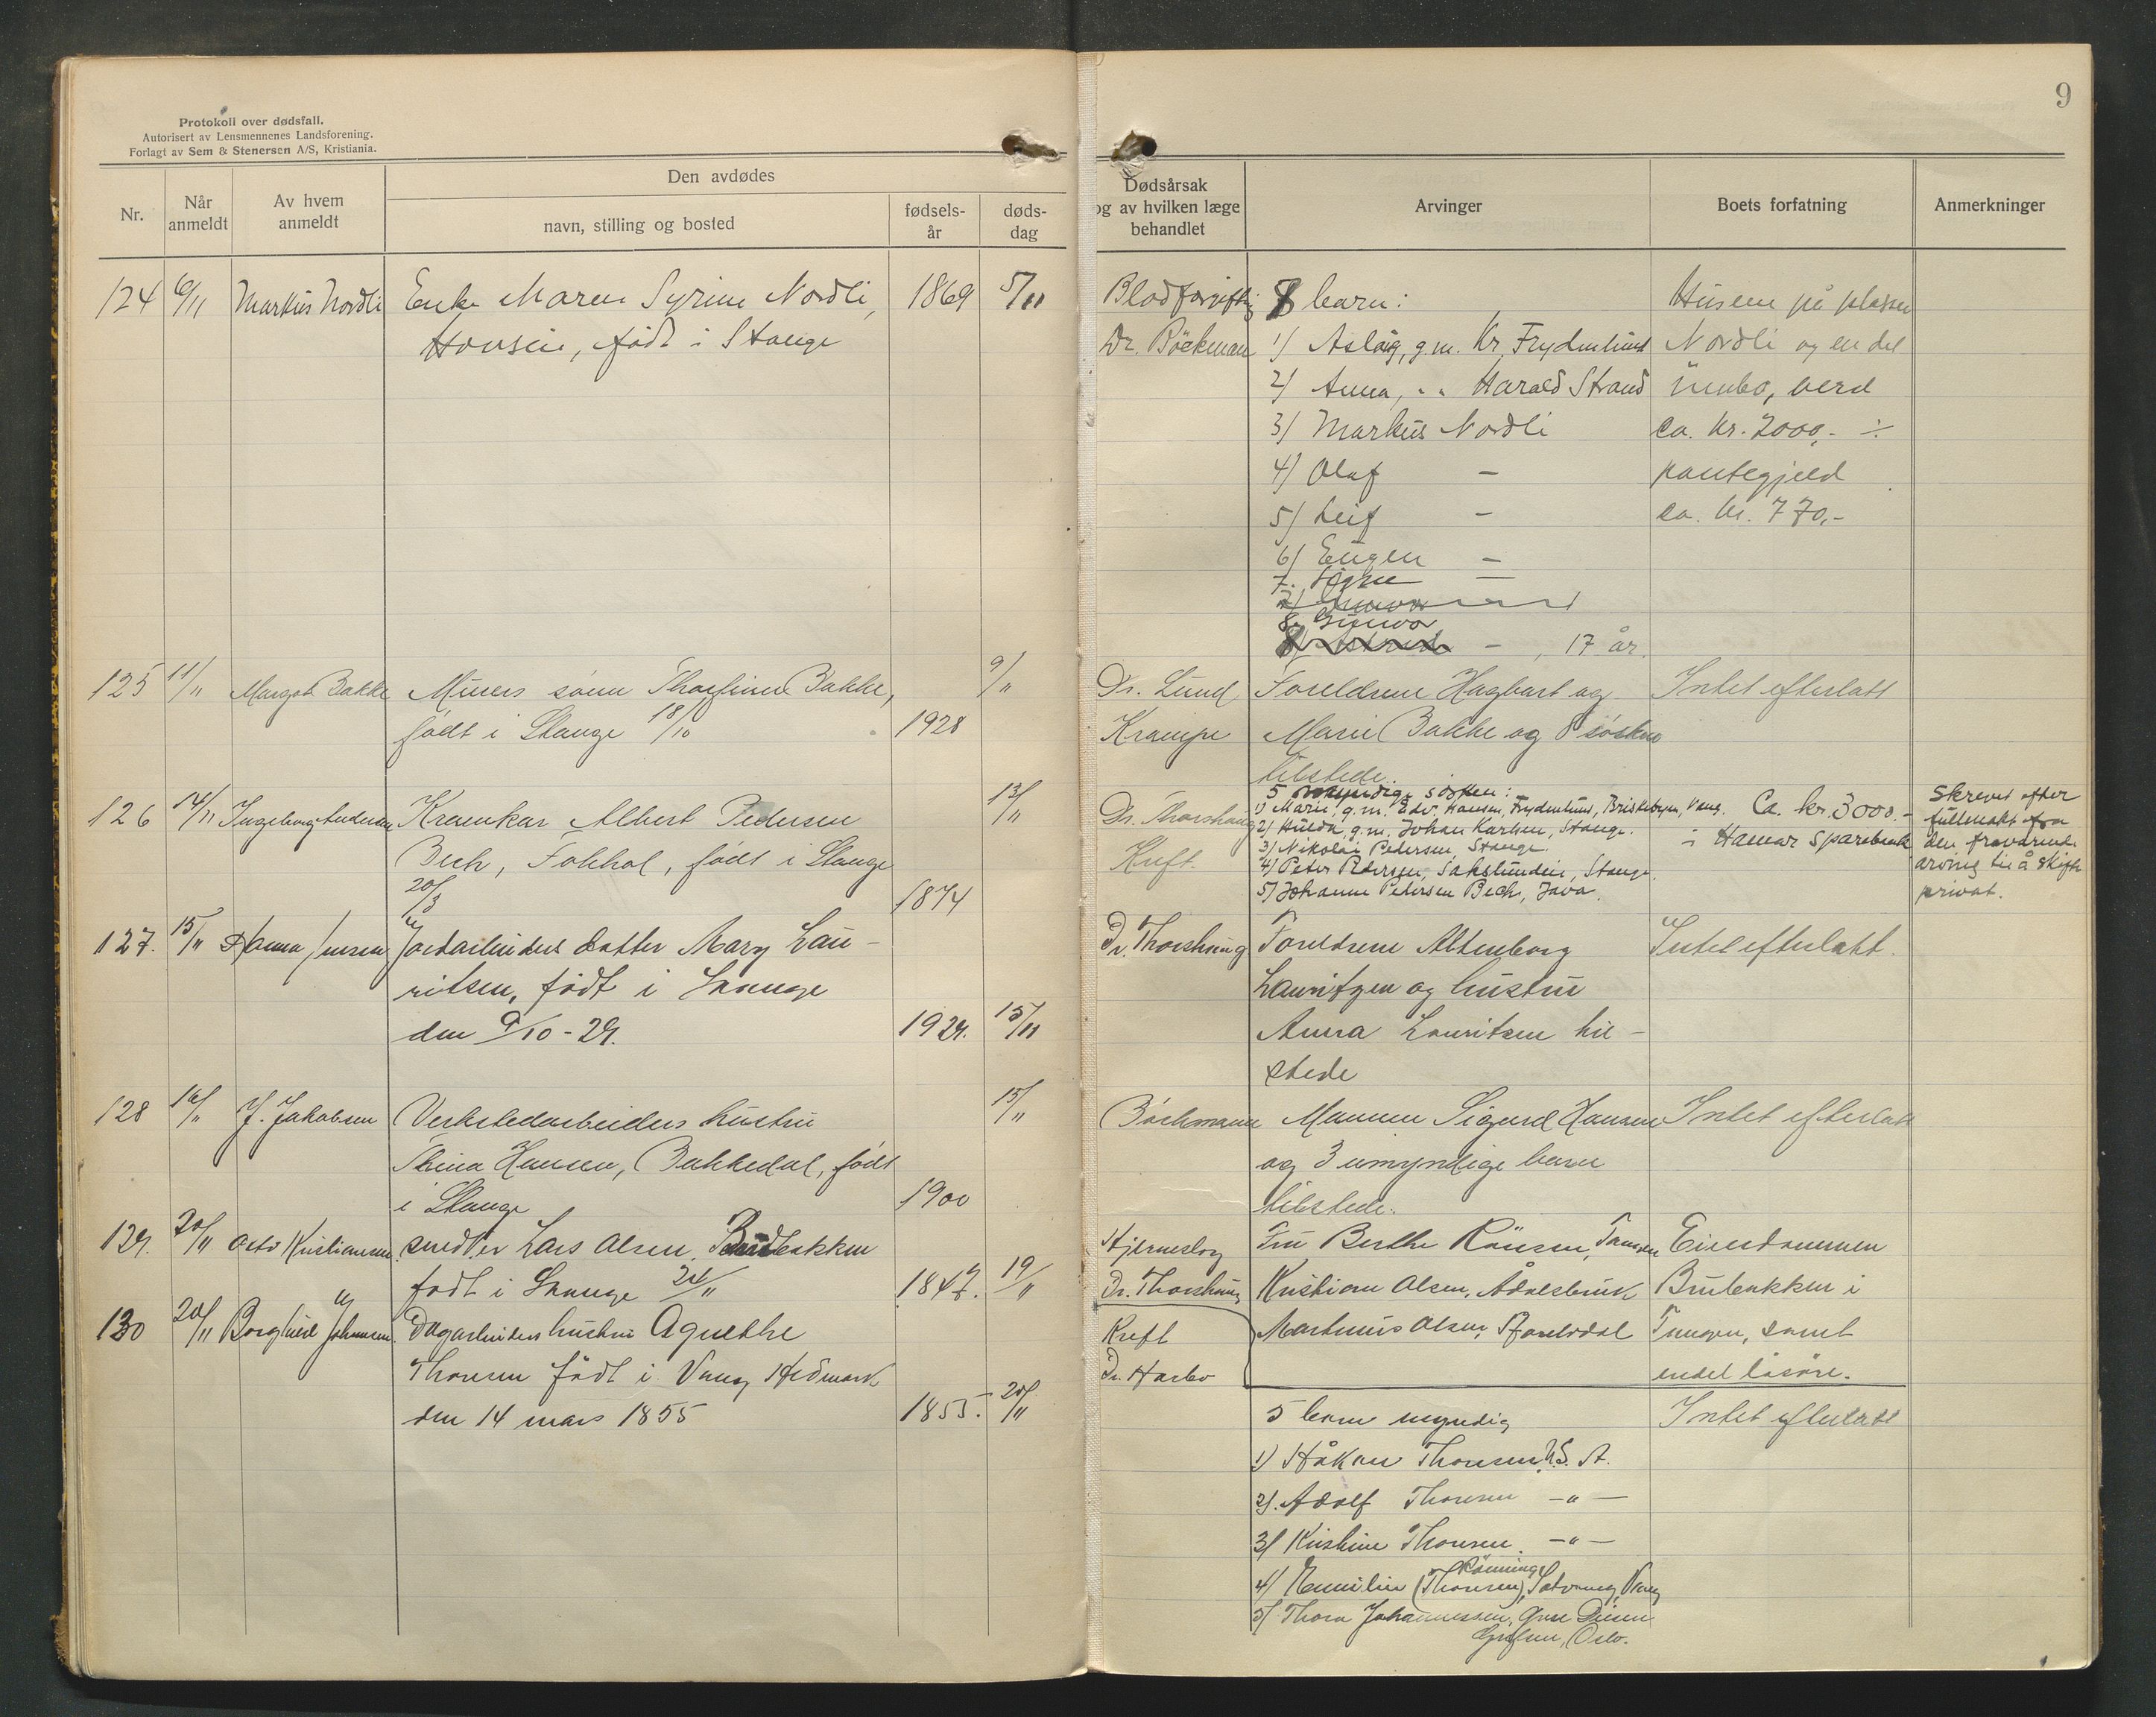 Protokoll over dødsfall.
Autorisert av Lensmennenes Landsforening.
Forlagt av Sem & Stenersen A/S, Kristiania.
Nr.
Når anmeldt
Av hvem anmeldt
Den avdødes
navn, stilling og bosted
fødsels-
år
døds-
dag
124 6/11 Markus Nordli Enke Maren Syrine Nordli, 1869 5/11
født i Stange
125 11/11 Margot Bakke Murers sønn Thorfinn Bakke, 9/11
født i Stange 18/10 1928
126 14/11 Ingeborg Andersen Albert Pedersen 13/11
Bech, født i Stange
20/3 1874
127. 15/11 Jensen Jordarbeiders datter Mary Lau-
ritsen, født i Stange
den 9/10 - 29. 1929. 15/11
128 16/11 J. Jakobsen Verkstedarbeiders hustru 15/11
Thina Hansen, Bakkedal, født
i Stange 1900
129. 20/11 Otto Kristiansen Lars Olsen,
født i Stange 24/11 1847. 19/11
130 20/11 Borghild Johansen Dagarbeiders hustru Agnethe
Thonsen født i Vang Hedmark
den 14 mars 1855 1855. 20/11
9
Dødsårsak
og av hvilken læge
behandlet
Arvinger
Boets forfatning
Anmerkninger
Blodforgiftig 8 barn: Husene på plassen
Dr. Böckman 1) Aslaug, g.m. Kr. Frydenlund Nordli og en del
2) Anna, " " Harald Strand innbo, verd
3) Markus Nordli ca. kr. 2000,- ÷
4) Olaf - pantegjeld
5) Leif - ca. kr. 770,-
6) Eugen -
7. Signe -
8. Gunvor
- , 17 år.
Dr. Lund Foreldrene Hagbart og Intet efterlatt
Krampe Marie Bakke og 8 søsken
tilstede.
5 søsken:
Dr. Thorshaug 1) Marie, g.m. Edv. Hansen, Frydenlund, Briskebyen, Vang. Ca. kr. 3000.- Skrevet efter
2) Hulda, g.m. Johan Karlsen, Stange. i Hamar Sparebank fullmakt fra
Kreft. 3) Nikolai Pedersen Stange. den fraværende
4) Peter Pedersen, Stange. arving til å skifte
5) Johanne Pedersen Bech, Java. privat.
Dr. Thorshaug Foreldrene Altenborg Intet efterlatt.
Lauritzen og hustru
Anna Lauritsen til-
stede
Böchmann Mannen Sigurd Hansen Intet efterlatt
og 3 umyndige barn
tilstede.
Hjerneslag Fru Berthe Eiendommen
Dr. Thorshaug Kristian Olsen, Ådalsbruk i
Kreft Martinus Olsen, samt
Dr. Harbo endel løsøre.
5 barn myndig Intet efterlatt
1) Håkon Thonsen U.S.A.
2). Adolf Thonsen -"-
3) Kristine Thonsen. -"-
Rønning
4) (Thonsen), Vang
5) Thora Johannessen,
Grefsen, Oslo.